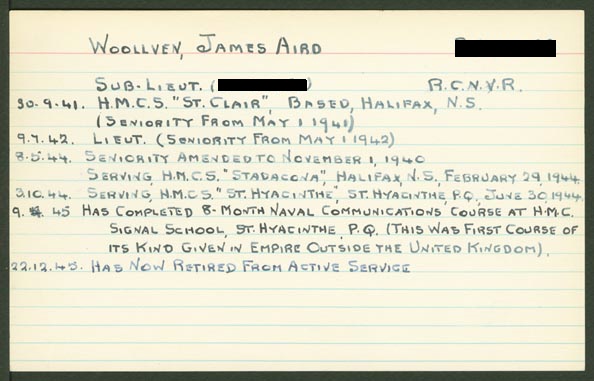 WOOLLVEN, JAMES AIRD
SUB-LIEUT. ( ) R.C.N.V.R.
30.9.41. H.M.C.S. "ST. CLAIR", BASED, HALIFAX, N.S.
(SENIORITY FROM MAY 1 1941)
9.7.42. LIEUT. (SENIORITY FROM MAY 1 1942)
8.5.44. SENIORITY AMENDED TO NOVEMBER 1, 1940
SERVING, H.M.C.S. "STADACONA", HALIFAX, N.S, FEBRUARY 29, 1944.
3.10.44. SERVING, H.M.C.S. "ST. HYACINTHE", ST. HYACINTHE, P.Q., JUNE 30, 1944.
9. 45 HAS COMPLETED 8-MONTH NAVAL COMMUNICATIONS COURSE AT H.M.C.
SIGNAL SCHOOL, ST. HYACINTHE, P.Q. (THIS WAS FIRST COURSE OF
ITS KIND GIVEN IN EMPIRE OUTSIDE THE UNITED KINGDOM).
22.12.45. HAS NOW RETIRED FROM ACTIVE SERVICE